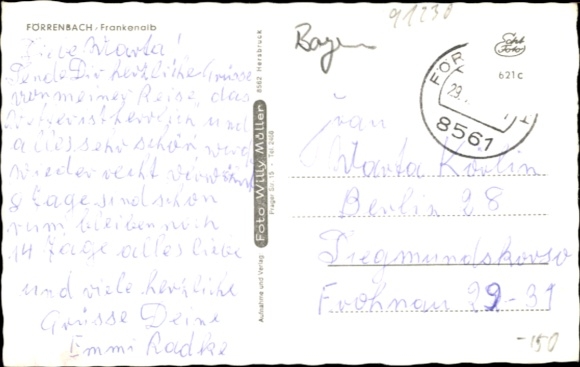 FÖRRENBACH/Frankenalb
91230
Bayern
Echt Foto
b21c
8561
Liebe Marta!
Sende Dir herzliche Grüsse
von meiner Reise, das
ist herrlich und
alles sehr schön wird
wieder recht verwöhnt
8 Tage sind schon
rum bleiben noch
14 Tage alles liebe
und viele herzliche
Grüsse Deine
Emmi Radke
Aufnahme und Verlag:
Foto Willy Müller
8562 Hersbruck
Prager Str. 15 · Tel. 2468
Frau
Marta Körlin
Berlin 28
Siegmundskorso
Frohnau 29-31
-150